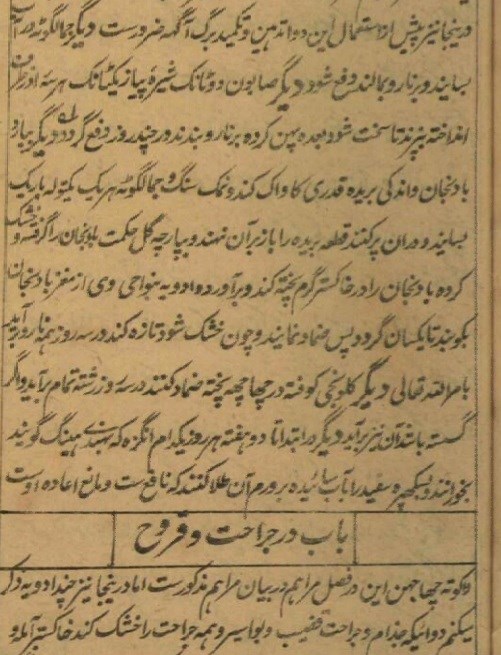 درینجا نیز پیش از استعمال این دوا تدهین و تکمید برگ آگهه ضرورست دیگر جمالگوته در آب
بسایند و برنارو بمالند دفع شود دیگر صابون دو ٹانک شیرهٔ پیاز یکٹانک هر سه
انداخته بپزند تا سخت شود بعده پهن کرده برنارو بندند در چند روز دفع گردد دیگر بیارند
بادنجان و اندکی بریده قدری کاواک کنند و نمک سنگ و جمالگوٹه هر یک یکتوله باریک
بسایند و در آن پر کنند قطعه بریده را باز بر آن نهند و بپارچه گل حکمت بادنجان را گرفته و خشک
کرده بادنجان را در خاکستر گرم پخته کنند و برآورده و ادویه بنواحی وی از مغز بادنجان
بکوبند تا یکسان گردد پس ضماد نمایند و چون خشک شود تازه کنند در سه روز همه نارو برآید
بامر الله تعالی دیگر کلونجی کوفته در چهاچهه پخته ضماد کنند در سه روز رشته تمام برآید و اگر
گسسته باشد آن نیز برآید دیگر در ابتدا تا دو هفته هر روز یکدرم انگزه که بهندی هینگ گویند
بخورانند و بسکهپره سفید را بآب سائیده بر ورم آن طلا کنند که نافع ست و مانع اعاده اوست
باب در جراحت و قروح
این در فصل مراهم در بیان مراهم مذکورست اما درینجا نیز چند ادویه ذکر
میکنم دوائیکه جذام و جراحت قضیب و بواسیر و همه جراحت را خشک کند خاکستر